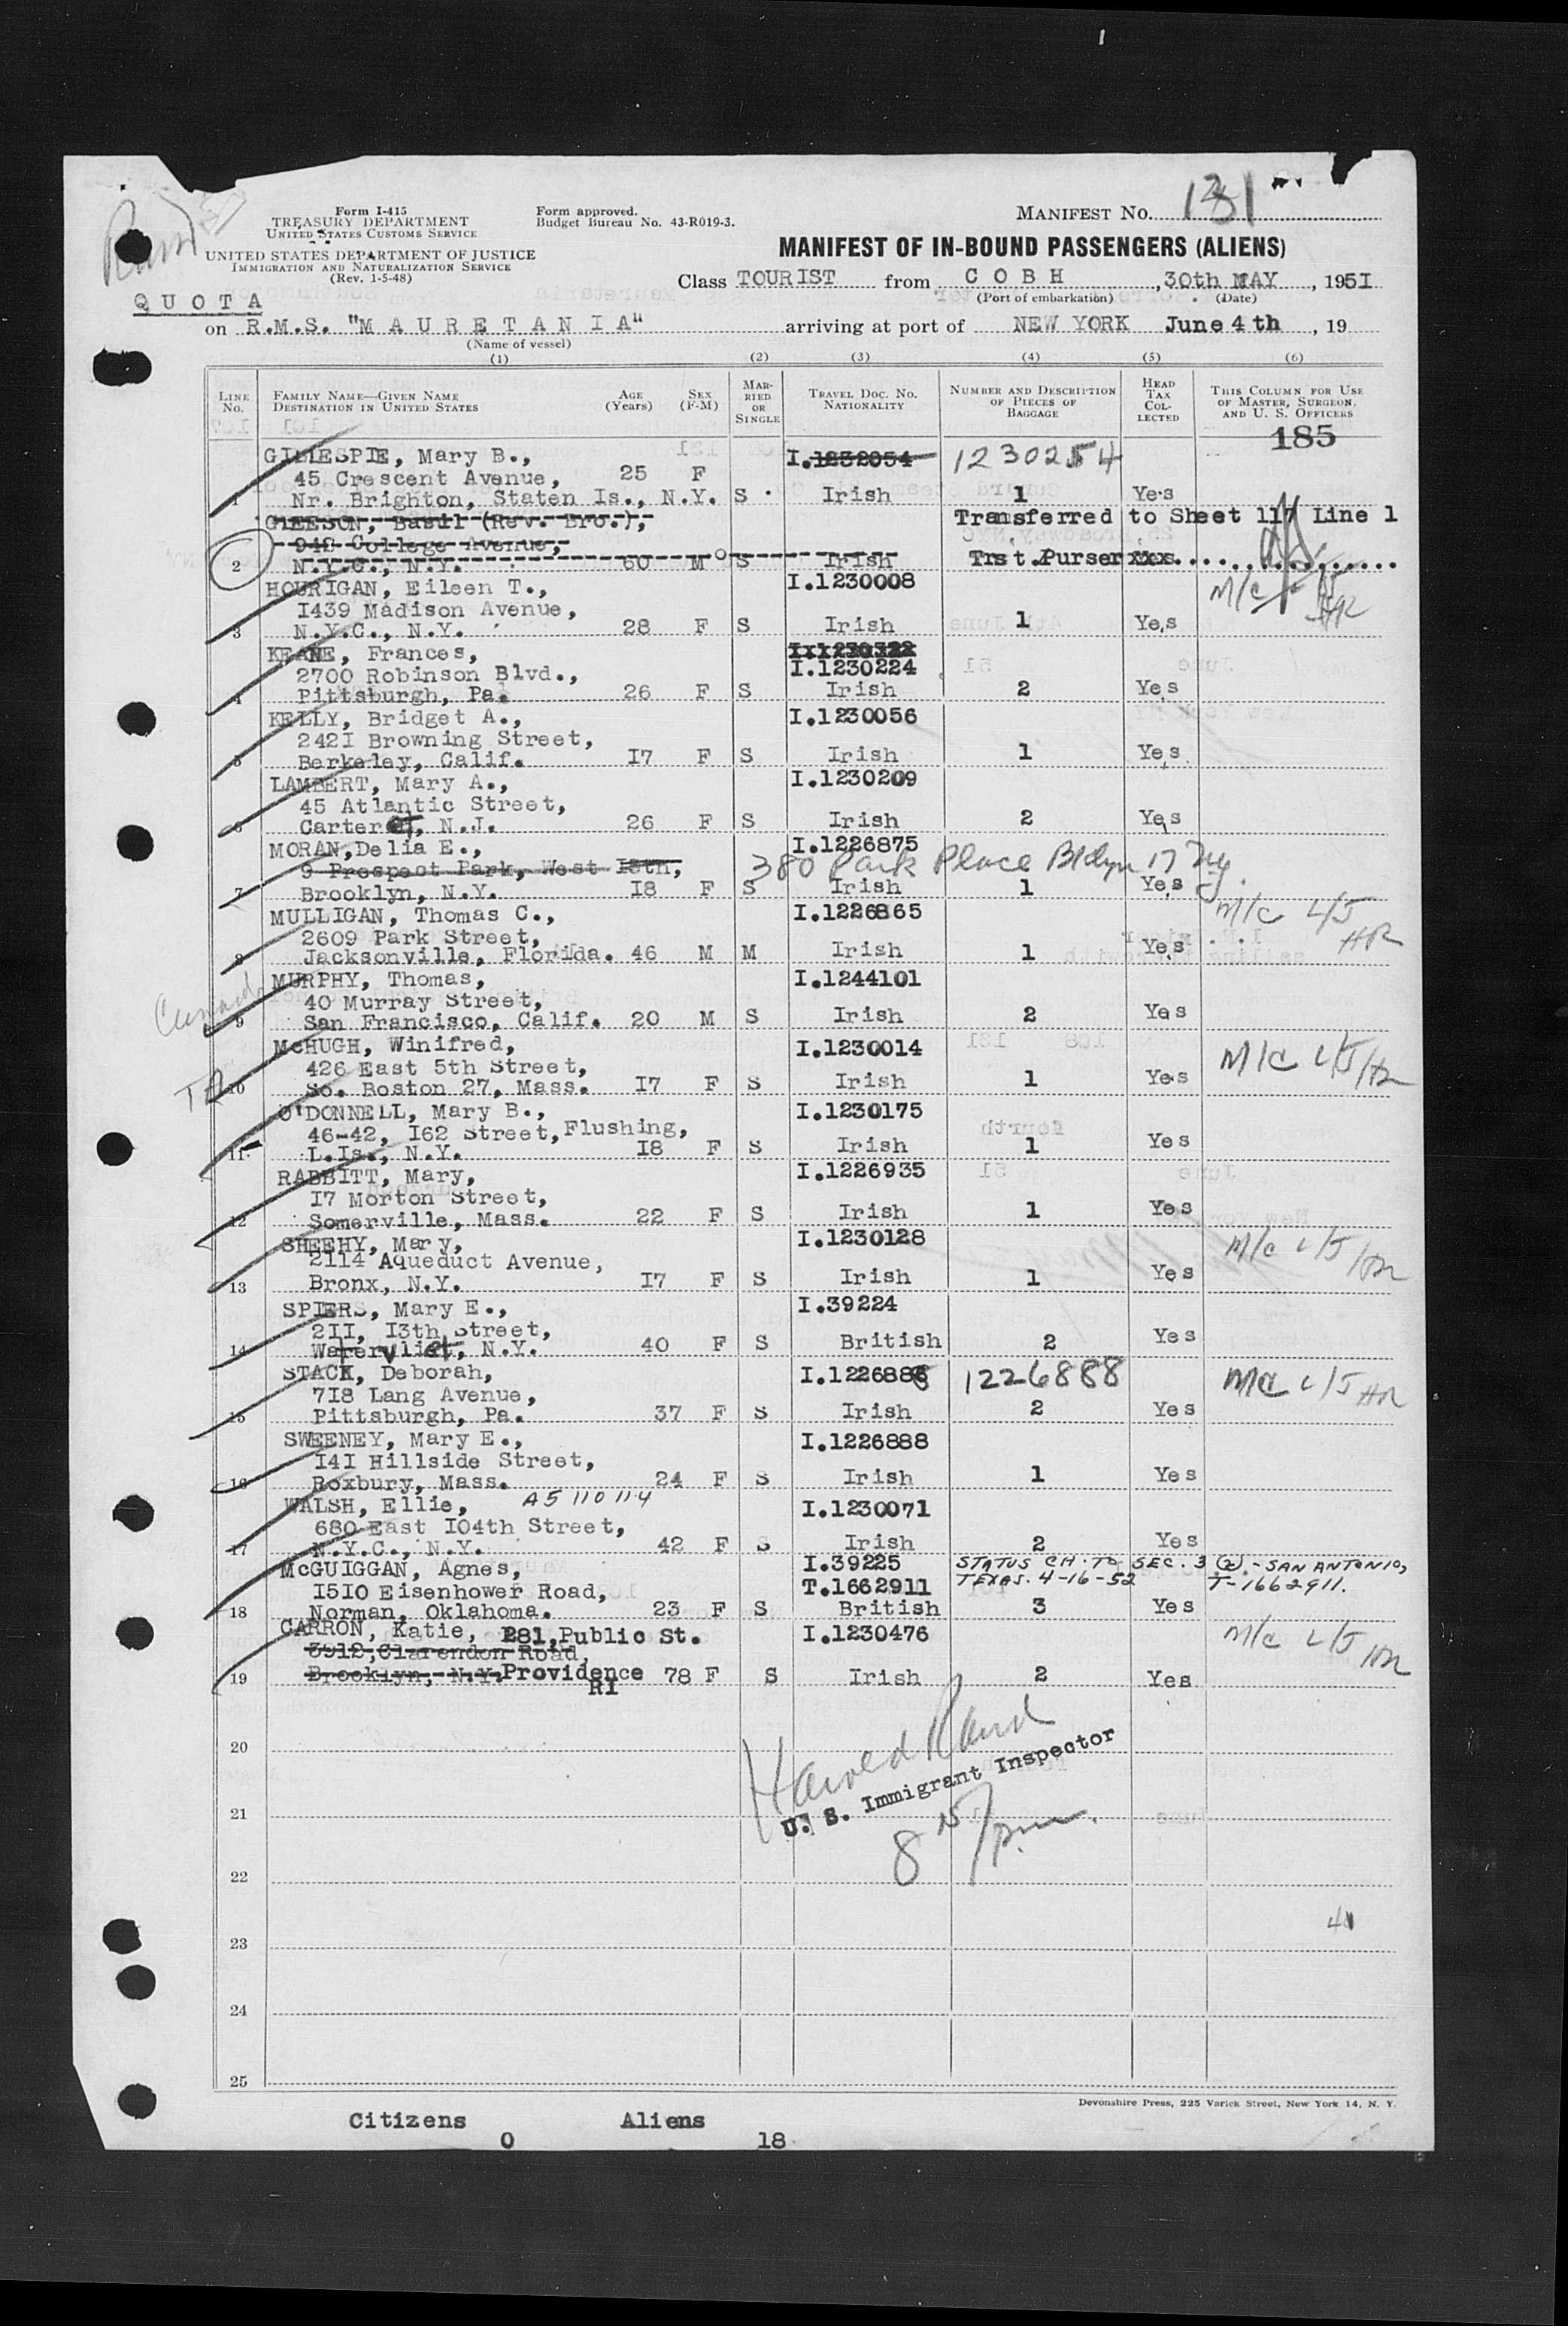 MANIFEST NO. 131
Form I-415
TREASURY DEPARTMENT
UNITED STATES CUSTOMS SERVICE
Form approved.
Budget Bureau No. 43-R019-3.
UNITED STATES DEPARTMENT OF JUSTICE
IMMIGRATION AND NATURALIZATION SERVICE
(Rev. 1-5-48)
MANIFEST OF IN-BOUND PASSENGERS (ALIENS)
Class TOURIST from C O B H, 30th MAY, 1951
(Port of embarkation) (Date)
Q U O T A
on R.M.S. "M A U R E T A N I A" arriving at port of NEW YORK June 4th, 19
(Name of vessel)
(1) (2) (3) (4) (5) (6)
LINE NO. FAMILY NAME—GIVEN NAME DESTINATION IN UNITED STATES AGE (Years) SEX (F-M) MARRIED OR SINGLE TRAVEL DOC. NO. NATIONALITY NUMBER AND DESCRIPTION OF PIECES OF BAGGAGE HEAD TAX COLLECTED THIS COLUMN FOR USE OF MASTER, SURGEON, AND U. S. OFFICERS
185
GILLESPIE, Mary B., I.1232054 1230254
45 Crescent Avenue, 25 F
1 Nr. Brighton, Staten Is., N.Y. S Irish 1 Yes
GLEESON, Basil (Rev. Bro.), Transferred to Sheet 117 Line 1
940 College Avenue,
2 N.Y.C., N.Y. 60 M S Irish Trst.Purser xxx
HOURIGAN, Eileen T., I.1230008 M/c
1439 Madison Avenue, HR
3 N.Y.C., N.Y. 28 F S Irish 1 Yes
KEANE, Frances, I.1230322
2700 Robinson Blvd., I.1230224
4 Pittsburgh, Pa. 26 F S Irish 2 Yes
KELLY, Bridget A., I.1230056
2421 Browning Street,
5 Berkeley, Calif. 17 F S Irish 1 Yes
LAMBERT, Mary A., I.1230209
45 Atlantic Street,
6 Carteret, N.J. 26 F S Irish 2 Yes
MORAN,Delia E., I.1226875
9 Prospect Park, West 18th, 380 Park Place Bklyn 17 NY
7 Brooklyn, N.Y. 18 F S Irish 1 Yes
MULLIGAN, Thomas C., I.1226865 M/c L/J
2609 Park Street, HR
8 Jacksonville, Florida. 46 M M Irish 1 Yes
MURPHY, Thomas, I.1244101
Cunard 40 Murray Street,
9 San Francisco, Calif. 20 M S Irish 2 Yes
McHUGH, Winifred, I.1230014 M/c L/J HR
426 East 5th Street,
10 So. Boston 27, Mass. 17 F S Irish 1 Yes
O'DONNELL, Mary B., I.1230175
46-42, 162 Street,Flushing,
11 L.Is., N.Y. 18 F S Irish 1 Yes
RABBITT, Mary, I.1226935
17 Morton Street,
12 Somerville, Mass. 22 F S Irish 1 Yes
SHEEHY, Mary, I.1230128 M/c L/J HR
2114 Aqueduct Avenue,
13 Bronx, N.Y. 17 F S Irish 1 Yes
SPIERS, Mary E., I.39224
211, 13th Street,
14 Watervliet, N.Y. 40 F S British 2 Yes
STACK, Deborah, I.1226888 1226888 M/c L/J HR
718 Lang Avenue,
15 Pittsburgh, Pa. 37 F S Irish 2 Yes
SWEENEY, Mary E., I.1226888
141 Hillside Street,
16 Roxbury, Mass. 24 F S Irish 1 Yes
WALSH, Ellie, A5 110 114 I.1230071
680 East 104th Street,
17 N.Y.C., N.Y. 42 F S Irish 2 Yes
McGUIGGAN, Agnes, I.39225 STATUS CH. TO SEC. 3 (2) - SAN ANTONIO,
1510 Eisenhower Road, T.1662911 TEXAS. 4-16-52 T-1662911.
18 Norman, Oklahoma. 23 F S British 3 Yes
CARRON, Katie, 281,Public St. I.1230476 M/c L/J HR
3912,Clarendon Road,
19 Brooklyn, N.Y. Providence 78 F S Irish 2 Yes
RI
Harold Rand
20
U. S. Immigrant Inspector
21
8 15/pm.
22
23
24
25
Devonshire Press, 225 Varick Street, New York 14, N. Y.
Citizens Aliens
0 18